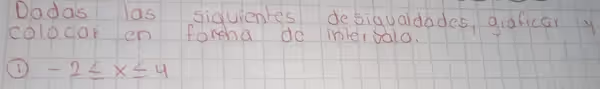 Dadas las siguientes desigualdades, graficar y
colocar en forma de intervalo.
① -2 ≤ x ≤ 4